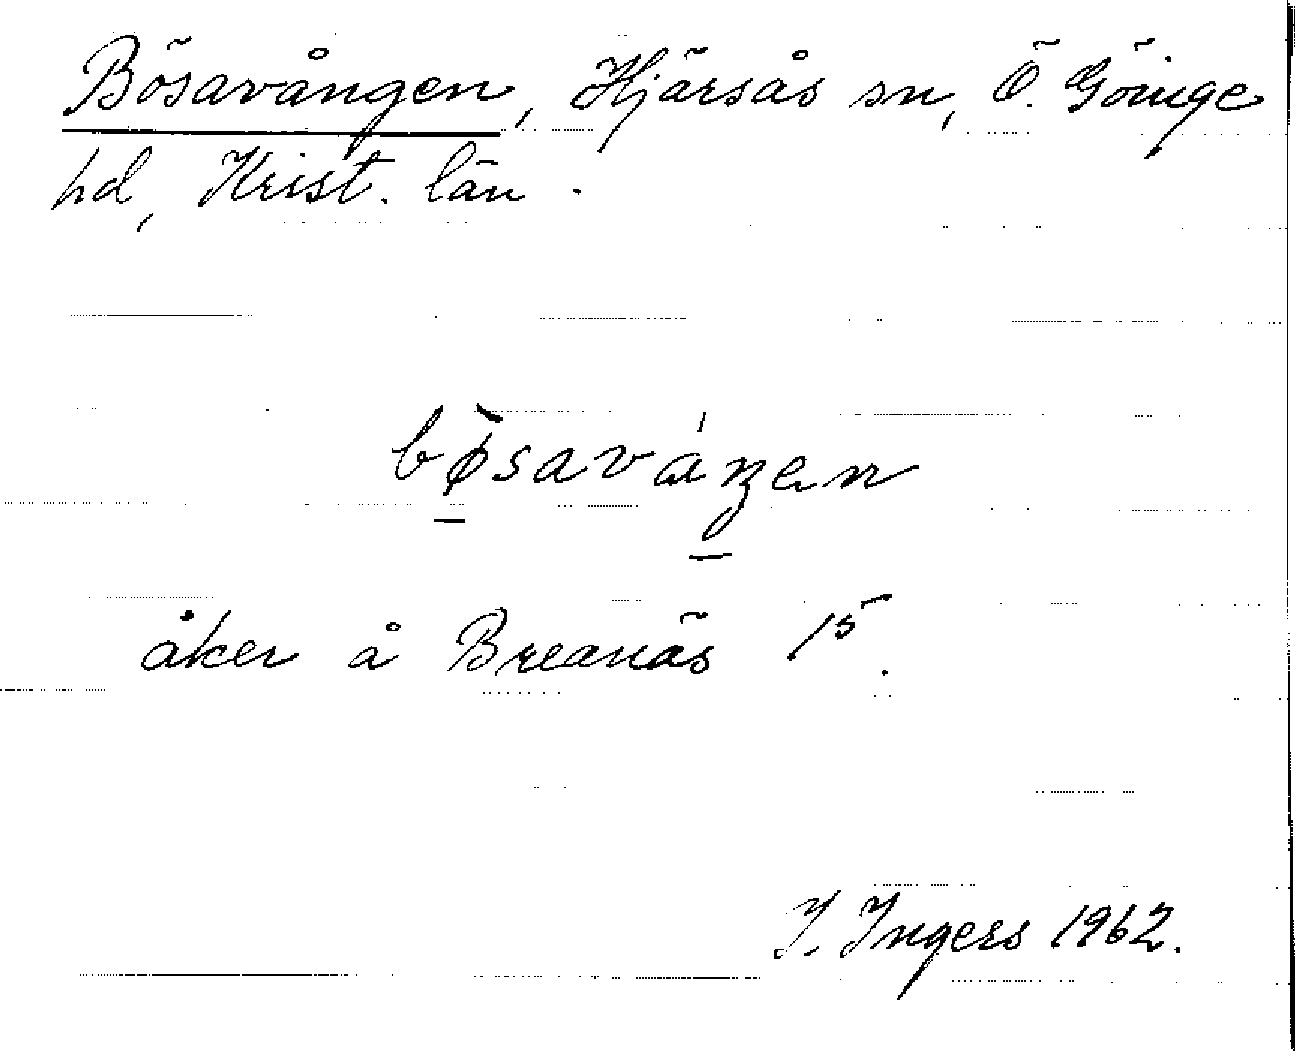 Bösavången, Hjärsås sn, Ö. Göinge
hd, Krist. län.
bø̀saváŋen
åker å Breanäs 15.
I. Ingers 1962.